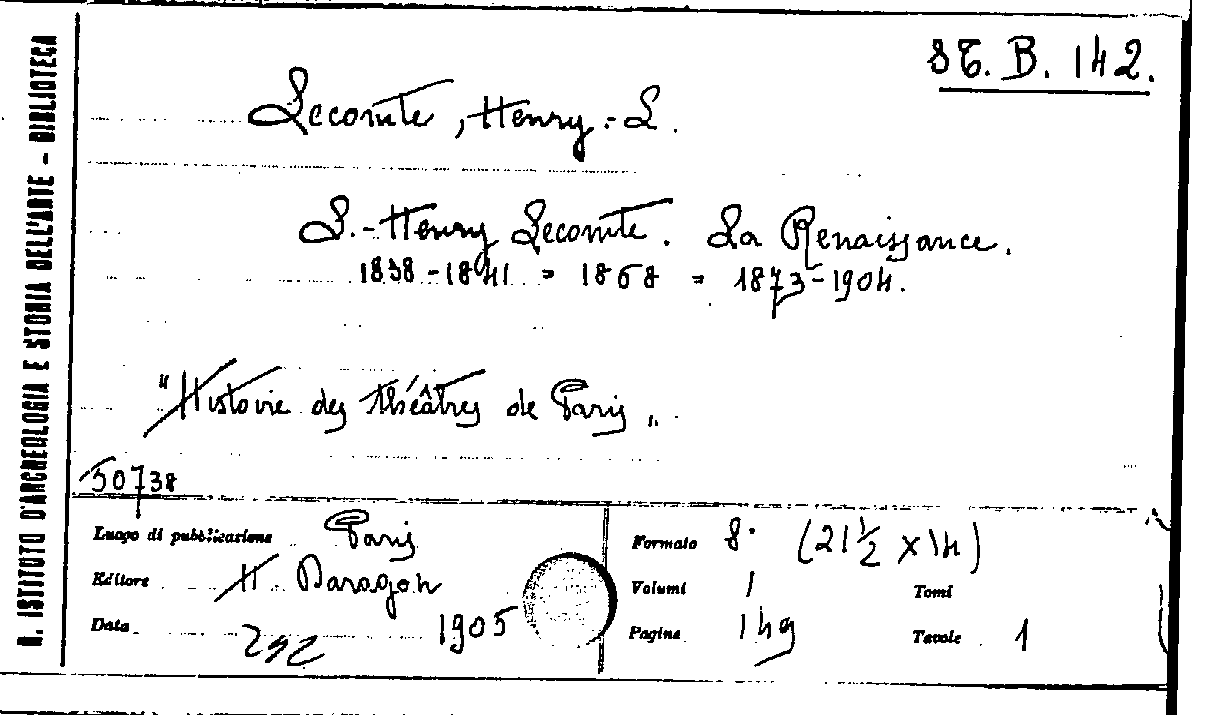 R. ISTITUTO D'ARCHEOLOGIA E STORIA DELL'ARTE - BIBLIOTECA
St. B. 142.
Lecomte, Henry-L.
L.-Henry Lecomte. La Renaissance.
1838-1841 = 1868 = 1873-1904.
"Histoire des théâtres de Paris„
50738
Luogo di pubblicazione Paris
Editore H. Daragon
Data 1905
Formato 8° (21½ x 14)
Volumi 1 Tomi
Pagine 149 Tavole 1